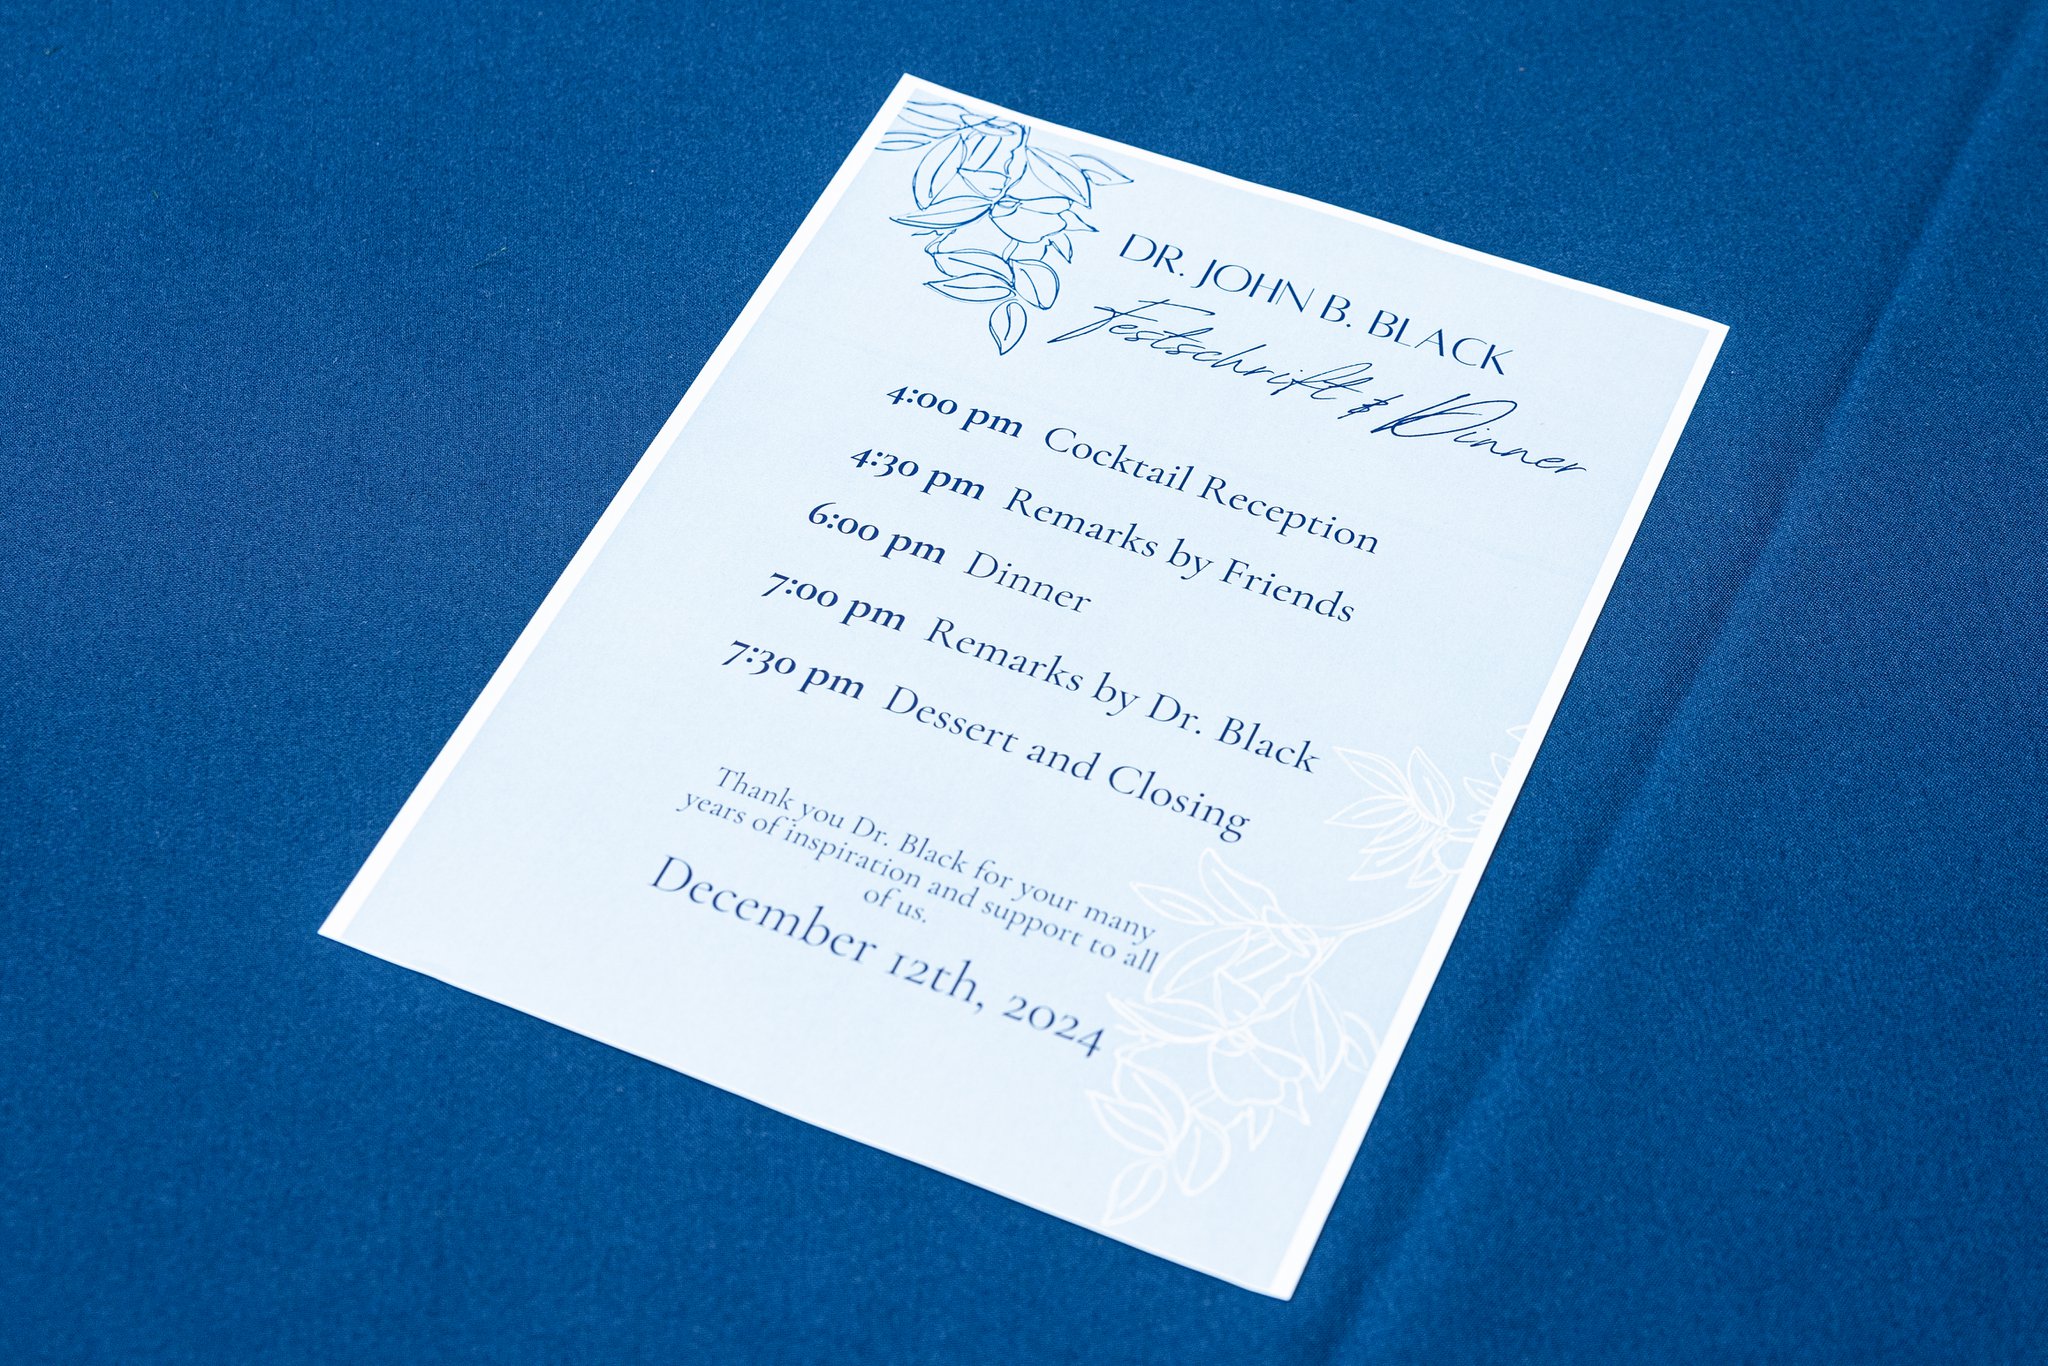 DR. JOHN B. BLACK
Festschrift & Dinner
4:00 pm Cocktail Reception
4:30 pm Remarks by Friends
6:00 pm Dinner
7:00 pm Remarks by Dr. Black
7:30 pm Dessert and Closing
Thank you Dr. Black for your many
years of inspiration and support to all
of us.
December 12th, 2024